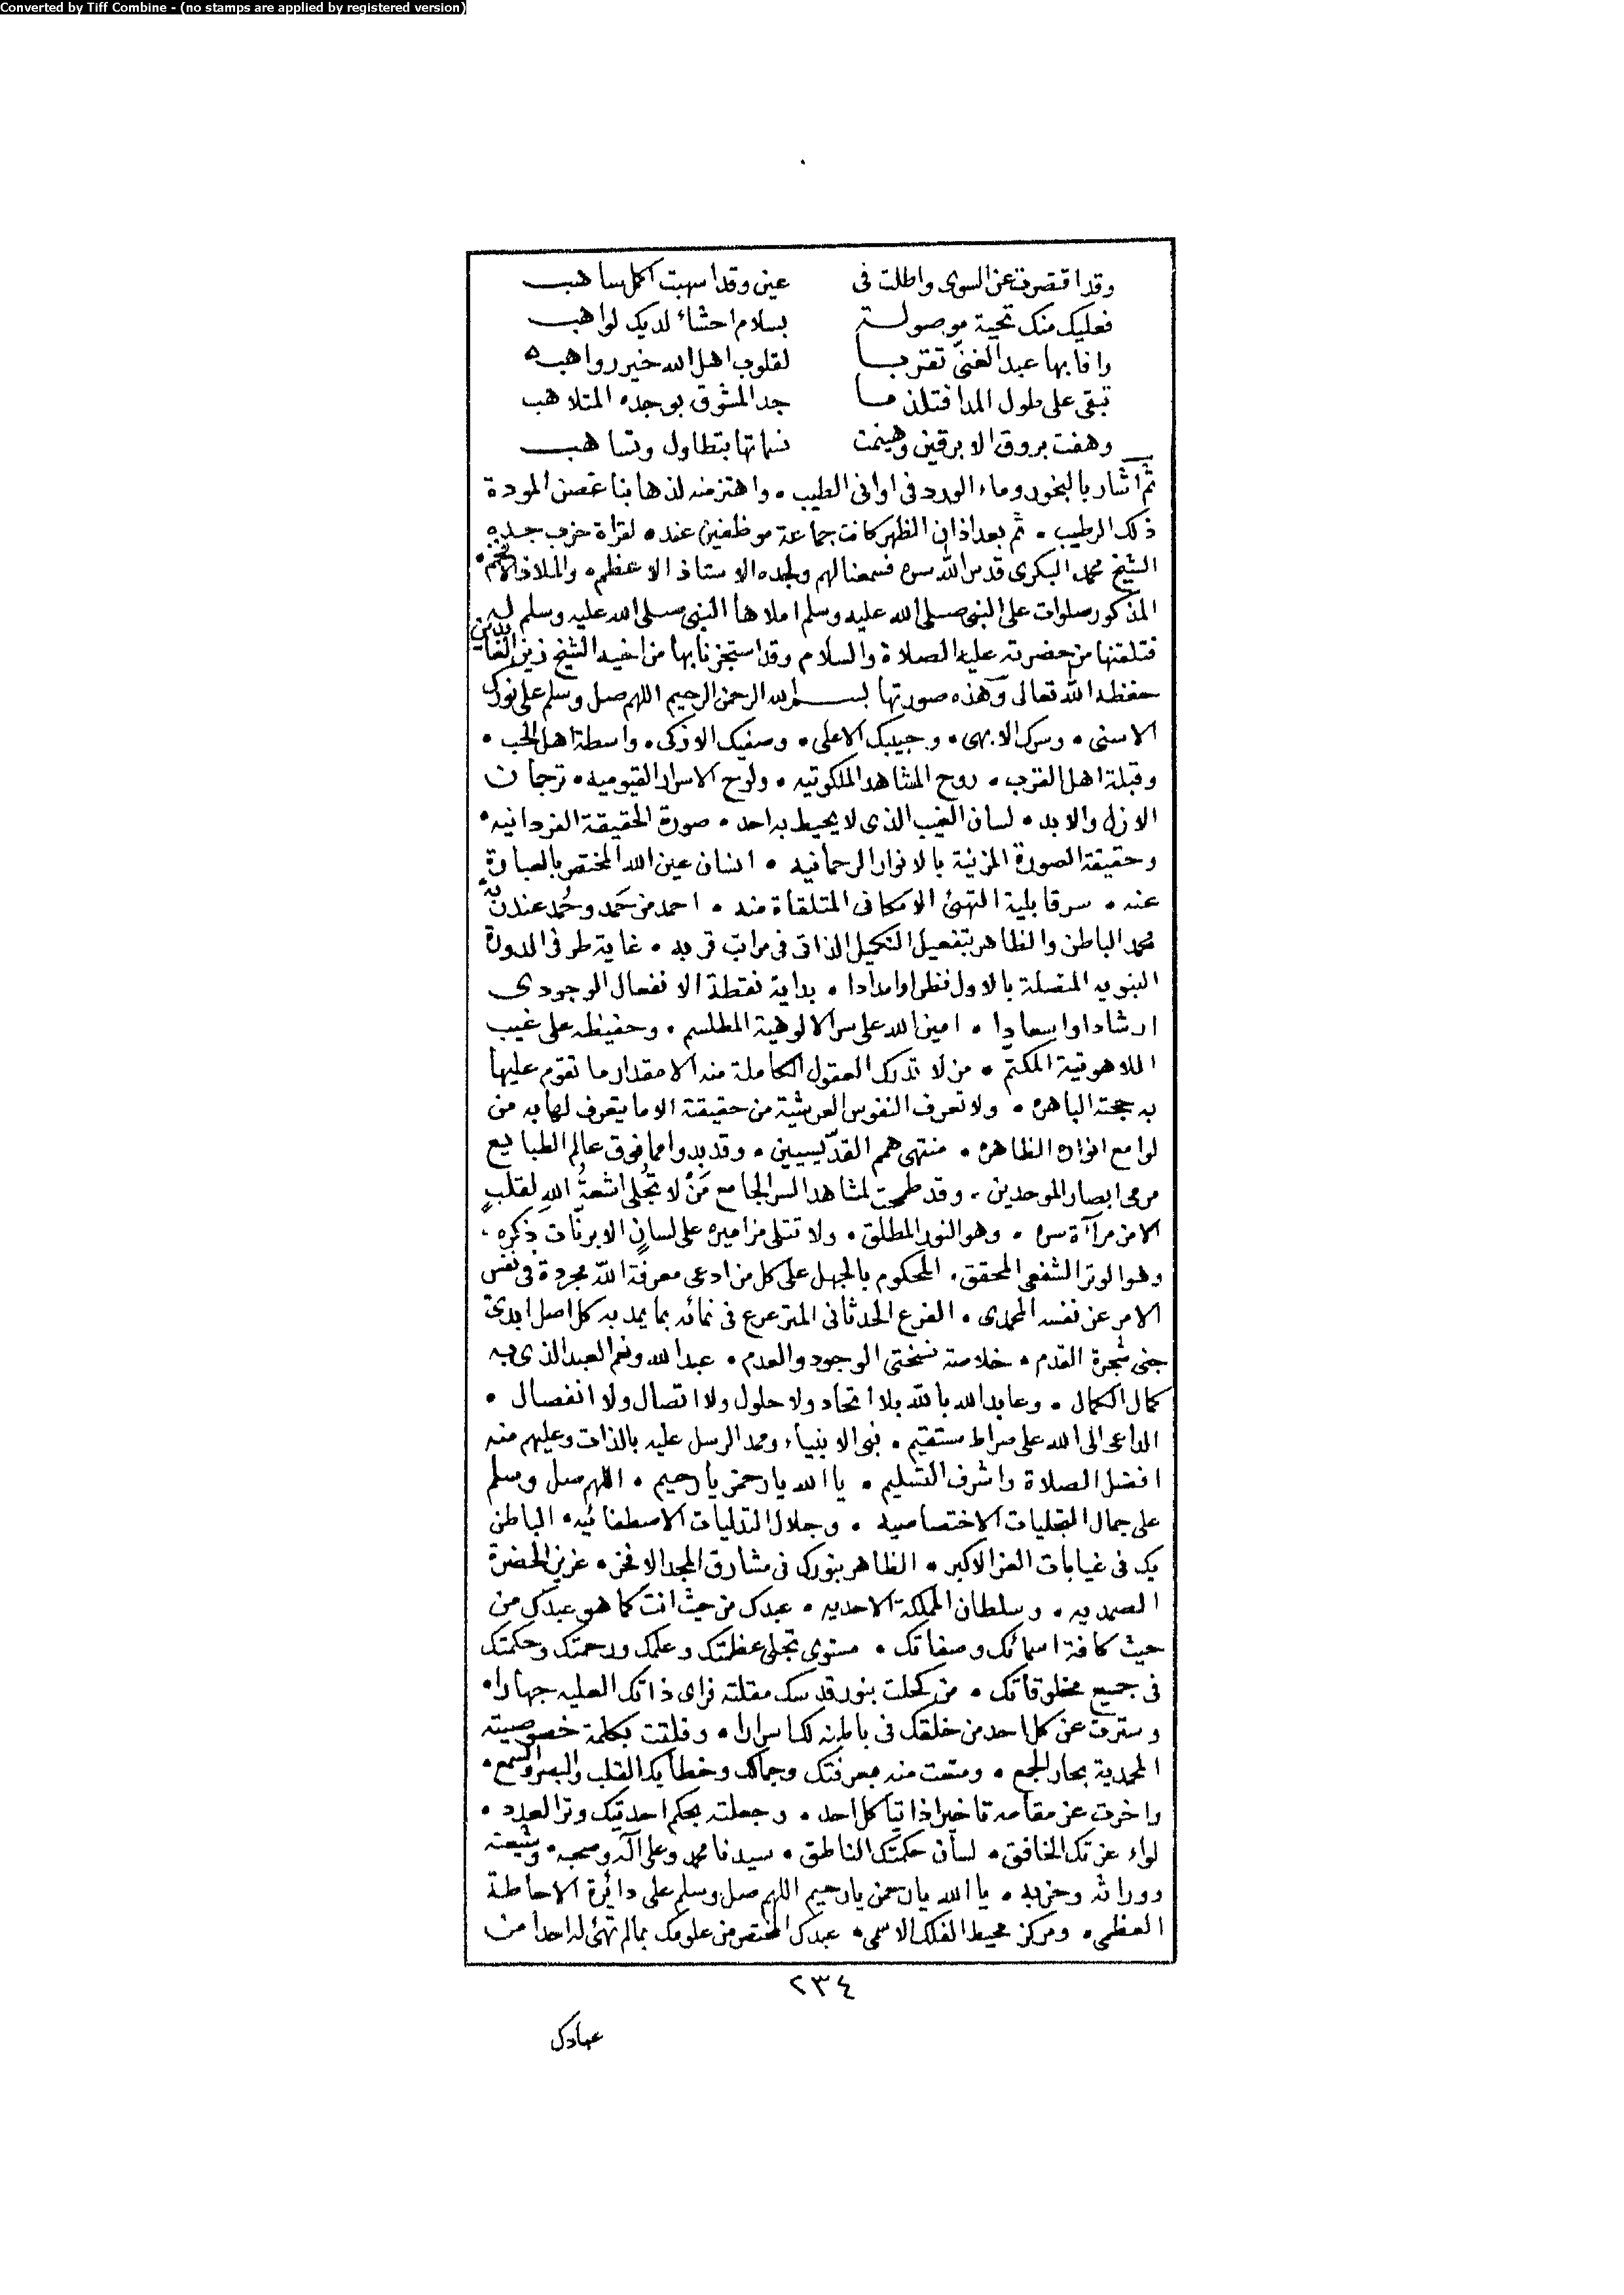 Converted by Tiff Combine - (no stamps are applied by registered version)
وقد اقتصرت عن السوى واطلت في عيني وقد اسهبت اكمل ساهب
فعليك منك تحية موصولة بسلام احشاء لديك لواهب
وافا بها عبد الغنيّ تقربا لقلوب اهل الله خير رواهبه
تبقى على طول المدا فتلذ ما جد المشوق بوجده المتلاهب
وهفت بروق الابرقين وهينمت نسماتها بتطاول وتساهب
ثم اشار بالبخور وماء الورد في اواني الطيب . واهتز منه لذهابنا غصن المودة
ذلك الرطيب . ثم بعد اذان الظهر كانت جماعة موظفين عنده لقراة حزب جده
الشيخ محمد البكري قدس الله سره فسمعنا لهم ولجده الاستاذ الاعظم . والملاذ الافخم .
المذكور صلوات على النبي صلى الله عليه وسلم املاها النبي صلى الله عليه وسلم ليه
فتلقنها من حضرته عليه الصلاة والسلام وقد استجزنا بها من اخيه الشيخ زين العابدين
حفظه الله تعالى وهذه صورتها بسم الله الرحمن الرحيم اللهم صل وسلم على نورك
الاسنى . وسرك الابهى . وحبيبك الاعلى . وصفيك الازكى . واسطة اهل الحب .
وقبلة اهل القرب . روح المشاهد الملكوتيه . ولوح الاسرار القيوميه . ترجمان
الازل والابد . لسان الغيب الذي لا يحيط به احد . صورة الحقيقة الفردانيه .
وحقيقة الصورة المزينة بالانوار الرحمانيه . انسان عين الله المختص بالعبارة
عنه . سر قابلية التهيئ الامكاني المتلقاة منه . احمد من حَمد وحُمد عند ربه
محمد الباطن والظاهر بتفعيل التكميل الذاتي في مراتب قربه . غاية طرفي الدورة
النبويه المتصلة بالاول نظرا وامدادا . بداية نقطة الانفعال الوجودي
ارشادا واسعادا . امين الله على سر الالوهية المطلسم . وحفيظه على غيب
اللاهوتية المكتّم . من لا تدرك العقول الكاملة منه الا مقدار ما تقوم عليها
به حجته الباهره . ولا تعرف النفوس العرشية من حقيقته الا ما يتعرف لها به من
لوامع انواره الظاهره . منتهى همم القدّيسيين . وقد بدوا مما فوق عالم الطبايع
مرمى ابصار الموحدين . وقد طمحت لمشاهد السر الجامع مَنْ لا تُجلى اشعةُ اللهِ لقلبٍ
الا من مرآة سره . وهو النور المطلق . ولا تتلى مزاميره على لسانٍ الا برنّات ذكره .
وهو الوتر الشفعي المحقق . المحكوم بالجهل على كل من ادعى معرفة الله مجردة في نفس
الامر عن نفسه المحمدى . الفرع الحدثاني المترعرع في نمائه بما يمد به كل اصل ابدي
جنى شجرة القدم . خلاصة نسختي الوجود والعدم . عبد الله ونعم العبد الذي به
كمال الكمال . وعابد الله بالله بلا اتحاد ولا حلول ولا اتصال ولا انفصال .
الداعي الى الله على صراط مستقيم . نبي الانبياء وممد الرسل عليه بالذات وعليهم منه
افضل الصلاة واشرف التسليم . يا الله يا رحمن يا رحيم . اللهم صل وسلم
على جمال التجليات الاختصاصيه . وجلال التدليات الاصطفائيه . الباطن
بك في غيابات العز الاكبر . الظاهر بنورك في مشارق المجد الافخر . عزيز الحضرة
الصمديه . وسلطان المملكة الاحديه . عبدك من حيث انت كما هو عبدك من
حيث كافة اسمائك وصفاتك . مستوى تجلى عظمتك وعلمك ورحمتك وحكمتك
في جميع مخلوقاتك . من كحلت بنور قدسك مقلته فراى ذاتك العليه جهارا .
وسترت عن كل احد من خلقك في باطنه لك اسرارا . وفلقت بكلمة خصوصيته
المحمدية بحار الجمع . ومتعت منه بمعرفتك وجمالك وخطابك القلب والبصر والسمع .
واخرت عن مقامه تاخيرا ذاتيا كل احد . وجعلته بحكم احديتك وتر العدد .
لواء عزتك الخافق . لسان حكمتك الناطق . سيدنا محمد وعلى آله وصحبه . وشيعته
ووراثه وحزبه . يا الله يا رحمن يا رحيم اللهم صل وسلم على دائرة الاحاطة
العظمى . ومركز محيط الفلك الاسمى . عبدك المختص من علومك بما لم تهيئ له احدا من
٢٣٤
عبادك